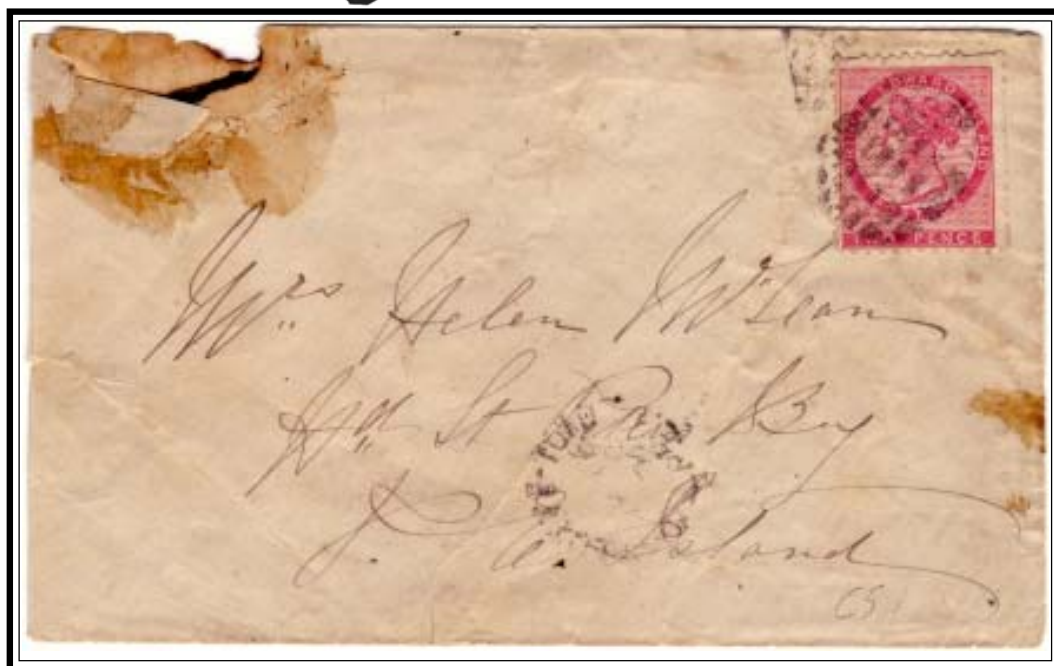 PRINCE EDWARD ISLAND
TWO PENCE
Mrs Helen McLean
Hd St Bay
P. E. Island